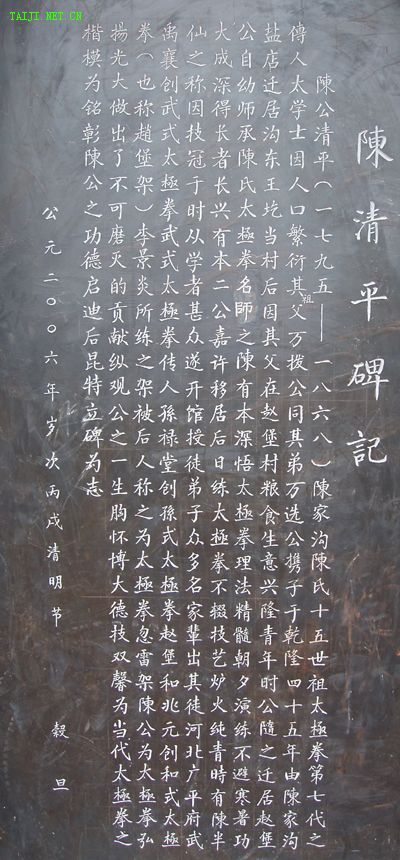 TAIJI.NET.CN
陳清平碑記
陳公清平(一七九五——一八六八)陳家沟陳氏十五世祖太極拳第七代之
傳人太学士因人口繁衍其祖父万拨公同其弟万选公携子于乾隆四十五年由陳家沟
盐店迁居沟东王圪当村后因其父在赵堡村粮食生意兴隆青年时公隨之迁居赵堡
公自幼师承陳氏太極拳名師之陳有本深悟太極拳理法精髓朝夕演练不避寒暑功
大成深得长者长兴有本二公嘉许移居后日练太極拳不辍技艺炉火纯青時有陳半
仙之称因技冠于时从学者甚众遂开馆授徒弟子众多名家辈出其徒河北广平府武
禹襄创武式太極拳武式太極拳传人孫禄堂创孫式太極拳赵堡和兆元创和式太極
拳(也称趙堡架)李景炎所练之架被后人称之为太極拳忽雷架陳公为太極拳弘
揚光大做出了不可磨灭的贡献纵观公之一生胸怀博大德技双馨为当代太極拳之
楷模为铭彰陳公之功德启迪后昆特立碑为志
公元二〇〇六年岁次丙戌清明节 穀旦